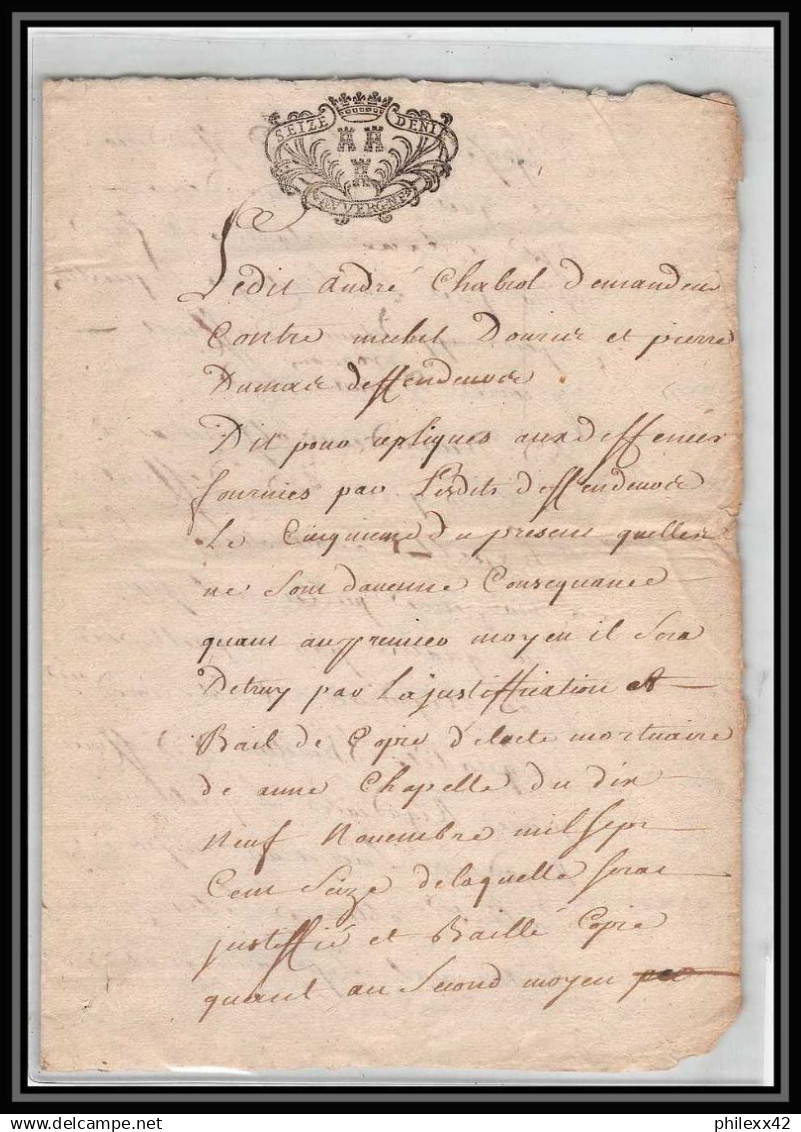 SEIZE DENI
AUVERGNE
Ledit André Chabrol demandeur
Contre michel Dourier et pierre
Dumas deffendeurs
Dit pour repliques aux deffences
fournies par Lesdits deffendeurs
Le Cinquieme du present quelles
ne sont daucune Consequance
quant au premier moyen il sera
Detruy par La justiffication et
Bail de Copie de lacte mortuaire
de anne Chapelle du dix
neuf Novembre mil sept
Cent Seize de laquelle sera
justiffié et Baillé Copie
quant au second moyen
philexx42